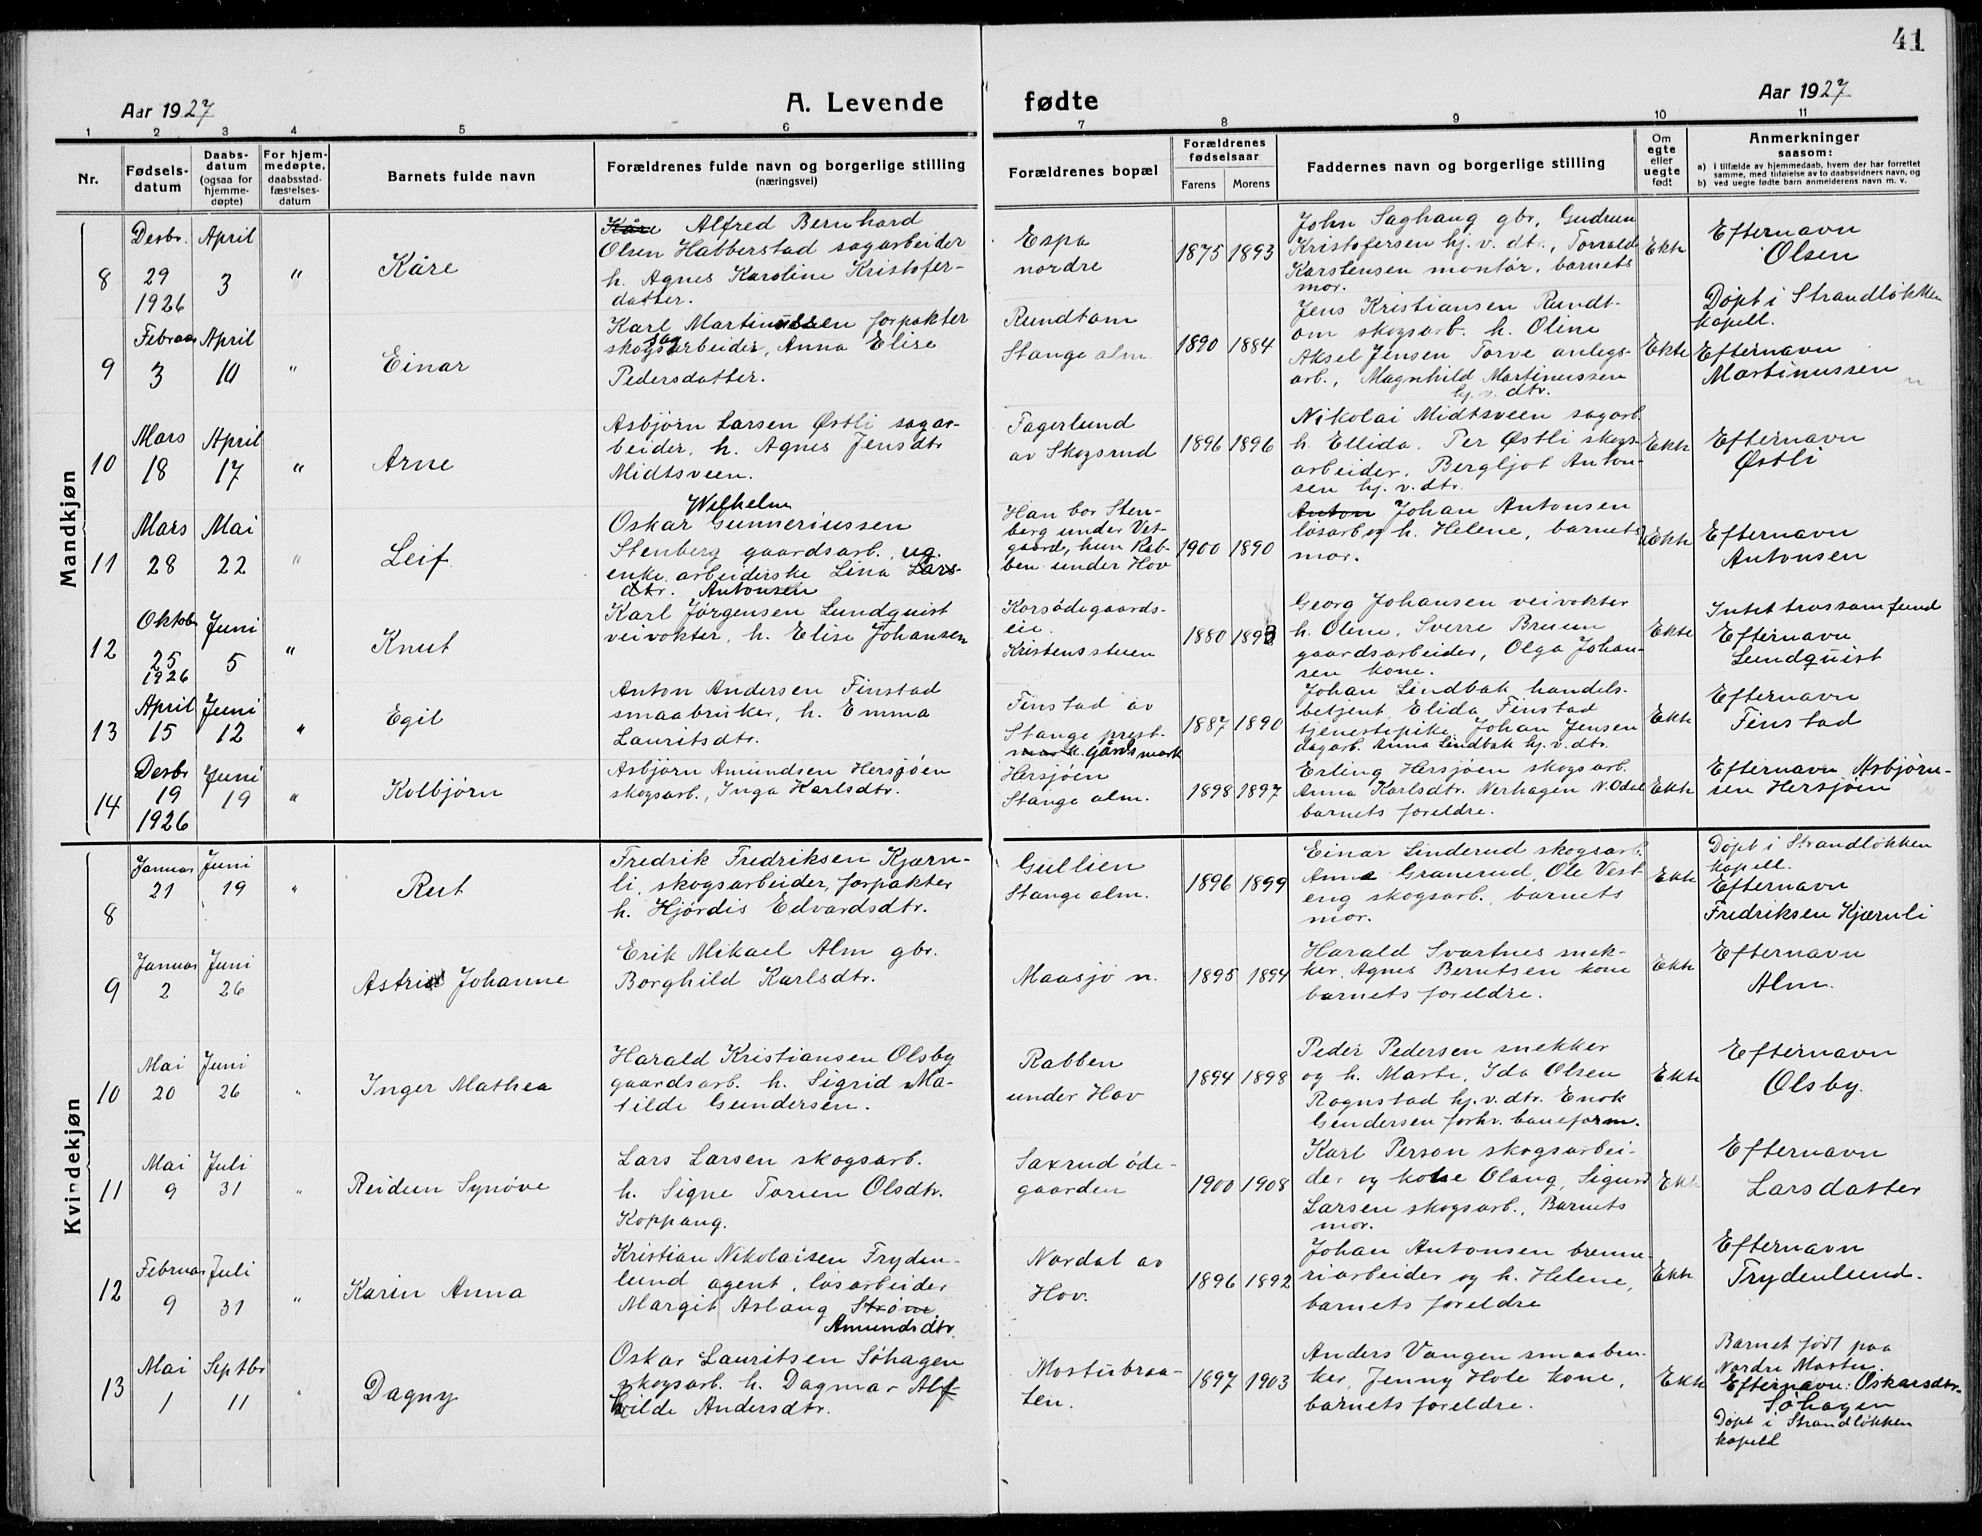 41
Aar 1927
A. Levende fødte
Aar 1927
1 2 3 4 5 6 7 8 9 10 11
Nr.
Fødsels-
datum
Daabs-
datum
(ogsaa for
hjemme-
døpte)
For hjem-
medøpte,
daabsstad-
fæstelses-
datum
Barnets fulde navn
Forældrenes fulde navn og borgerlige stilling
(næringsvei)
Forældrenes bopæl
Forældrenes
fødselsaar
Farens Morens
Faddernes navn og borgerlige stilling
Om
egte
eller
uegte
født
Anmerkninger
saasom:
a) i tilfælde av hjemmedaab, hvem der har forrettet
samme, med tilføielse av to daabsvidners navn, og
b) ved uegte fødte barn anmelderens navn m. v.
Mandkjøn
8
Desbr.
29
1926
April
3
"
Kåre
Kåre Alfred Bernhard
Olsen Habberstad sagarbeider
h. Agnes Karoline Kristofer-
datter.
Espa
nordre
1875 1893
John Saghaug gbr, Gudrun
Kristofersen hj. v. dtr., Torvald
Karstensen montør, barnets
mor.
Ekte
Efternavn
Olsen
9
Februar
3
April
10
"
Einar
Karl Martinussen forpakter
sag
skogsarbeider, Anna Elise
Pedersdatter.
Rundtom
Stange alm.
1890 1884
Jens Kristiansen Rundt-
om skogsarb. h. Oline
Aksel Jensen Torve anlegs-
arb., Magnhild Martinussen
hj. v. dtr.
Ekte
Døpt i Strandløkken
kapell.
Efternavn
Martinussen
10
Mars
18
April
17
"
Arne
Asbjørn Larsen Østli sagar-
beider, h. Agnes Jensdtr
Midtsveen.
Fagerlund
av Skogsrud
1896 1896
Nikolai Midtsveen sagarb.
h. Ellida. Per Østli skogs-
arbeider, Bergljot Anton-
sen hj. v. dtr.
Ekte
Efternavn
Østli
11
Mars
28
Mai
22
"
Leif
Wilhelm
Oskar Gunneriussen
Stenberg gaardsarb. ug.
enke arbeiderske Lina Lars-
dtr. Antonsen
Han bor Sten-
berg under Vet-
gaard, hun Rab-
ben under Hov
1900 1890
Anton Johan Antonsen
løsarb og h. Helene, barnets
mor.
Uekte
Efternavn
Antonsen
12
Oktob
25
1926
Juni
5
"
Knut
Karl Jørgensen Lundquist
veivokter, h. Elise Johansen
Korsødegaards-
eie.
Kristensstuen
1880 1893
Georg Johansen veivokter
h. Olene, Sverre Bruun
gaardsarbeider, Olga Johan-
sen kone.
Ekte
Intet trossamfund
Efternavn
Lundquist
13
April
15
Juni
12
"
Egil
Anton Andersen Finstad
smaabruker, h. Emma
Lauritsdtr.
Finstad av
Stange prest-
gårds mark
1887 1890
Johan Lindbak handels-
betjent, Elida Finstad
tjenestepike, Johan Jensen
dagarb. Anna Lindbak hj. v. dtr.
Ekte
Efternavn
Finstad
14
Desbr
19
1926
Juni
19
"
Kolbjørn
Asbjørn Amundsen Hersjøen
skogsarb., Inga Karlsdtr.
Hersjøen
Stange alm.
1898 1897
Erling Hersjøen skogsarb.
Anna Karlsdtr. Nerhagen N. Odal
barnets foreldre.
Ekte
Efternavn Asbjørn-
sen Hersjøen
Kvindekjøn
8
Januar
21
Juni
19
"
Rut
Fredrik Fredriksen Kjærn-
li, skogsarbeider, forpakter
h. Hjørdis Edvardsdtr.
Gullien
Stange alm.
1896 1899
Einar Linderud skogsarb.
Anna Granerud, Ole Vest-
eng skogsarb. barnets
mor.
Ekte
Døpt i Strandløkken
kapell.
Efternavn
Fredriksen Kjærnli
9
Januar
2
Juni
26
Astrid Johanne
Erik Mikael Alm gbr.
Borghild Karlsdtr.
Maasjø n.
1895 1894
Harald Svartnes snek-
ker, Agnes Berntsen kone
barnets foreldre.
Ekte
Efternavn
Alm.
10
Mai
20
Juni
26
"
Inger Mathea
Harald Kristiansen Olsby
gaardsarb. h. Sigrid Ma-
tilde Gundersen.
Rabben
under Hov
1894 1898
Peder Pedersen snekker
og h. Marte, Ida Olsen
Rognstad hj. v. dtr. Enok
Gundersen forhv. baneform.
Ekte
Efternavn
Olsby.
11
Mai
9
Juli
31
"
Reidun Synøve
Lars Larsen skogsarb.
h. Signe Torun Olsdtr.
Koppang.
Saxrud øde-
gaarden
1900 1908
Karl Person skogsarbei-
der og kone Olaug, Sigurd
Larsen skogsarb., Barnets
mor.
Ekte
Efternavn
Larsdatter
12
Februar
9
Juli
31
"
Karin Anna
Kristian Nikolaisen Fryden-
lund agent, løsarbeider
Margit Aslaug Strøm
Amundsdtr.
Nordal av
Hov.
1896 1892
Johan Antonsen brenne-
riarbeider og h. Helene,
barnets foreldre
Ekte
Efternavn
Frydenlund.
13
Mai
1
Septbr
11
"
Dagny
Oskar Lauritsen Søhagen
skogsarb. h. Dagmar Alf-
hilde Andersdtr.
Mostubraa-
ten.
1897 1903
Anders Vangen smaabru-
ker, Jenny Hole kone,
barnets foreldre.
Ekte
Barnet født paa
Nordre Mostu.
Efternavn: Oskarsdtr.
Søhagen
Døpt i Strandløkken
kapell